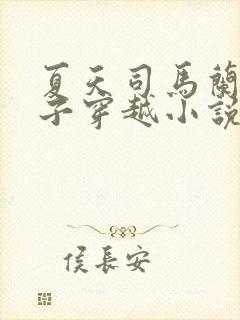 夏天司馬蘭
子穿越小說
侯長安